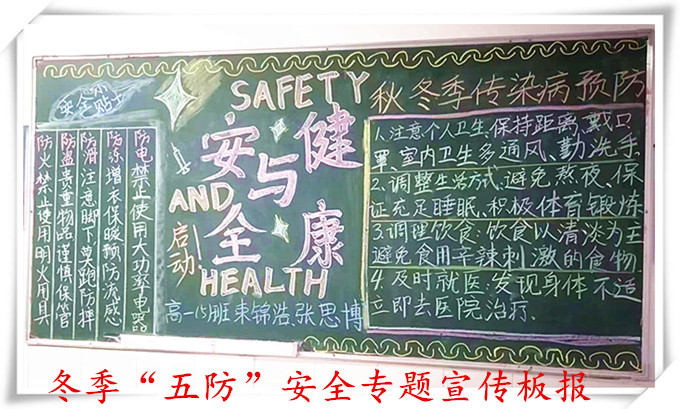 安全小贴士
防电禁止使用大功率电器
防冻增衣保暖预防流感
防滑注意脚下草跑防摔
防盗贵重物品谨慎保管
防火禁止使用明火用具
SAFETY
安健
AND与
全康
启动
HEALTH
高一15班束锦浩张思博
秋冬季传染病预防
1.注意个人卫生:保持距离、戴口
罩、室内卫生多通风、勤洗手
2、调整生活方式:避免熬夜、保
证充足睡眠、积极体育锻炼
3.调理饮食:饮食以清淡为主
避免食用辛辣刺激的食物
4.及时就医:发现身体不适
立即去医院治疗.
冬季“五防”安全专题宣传板报